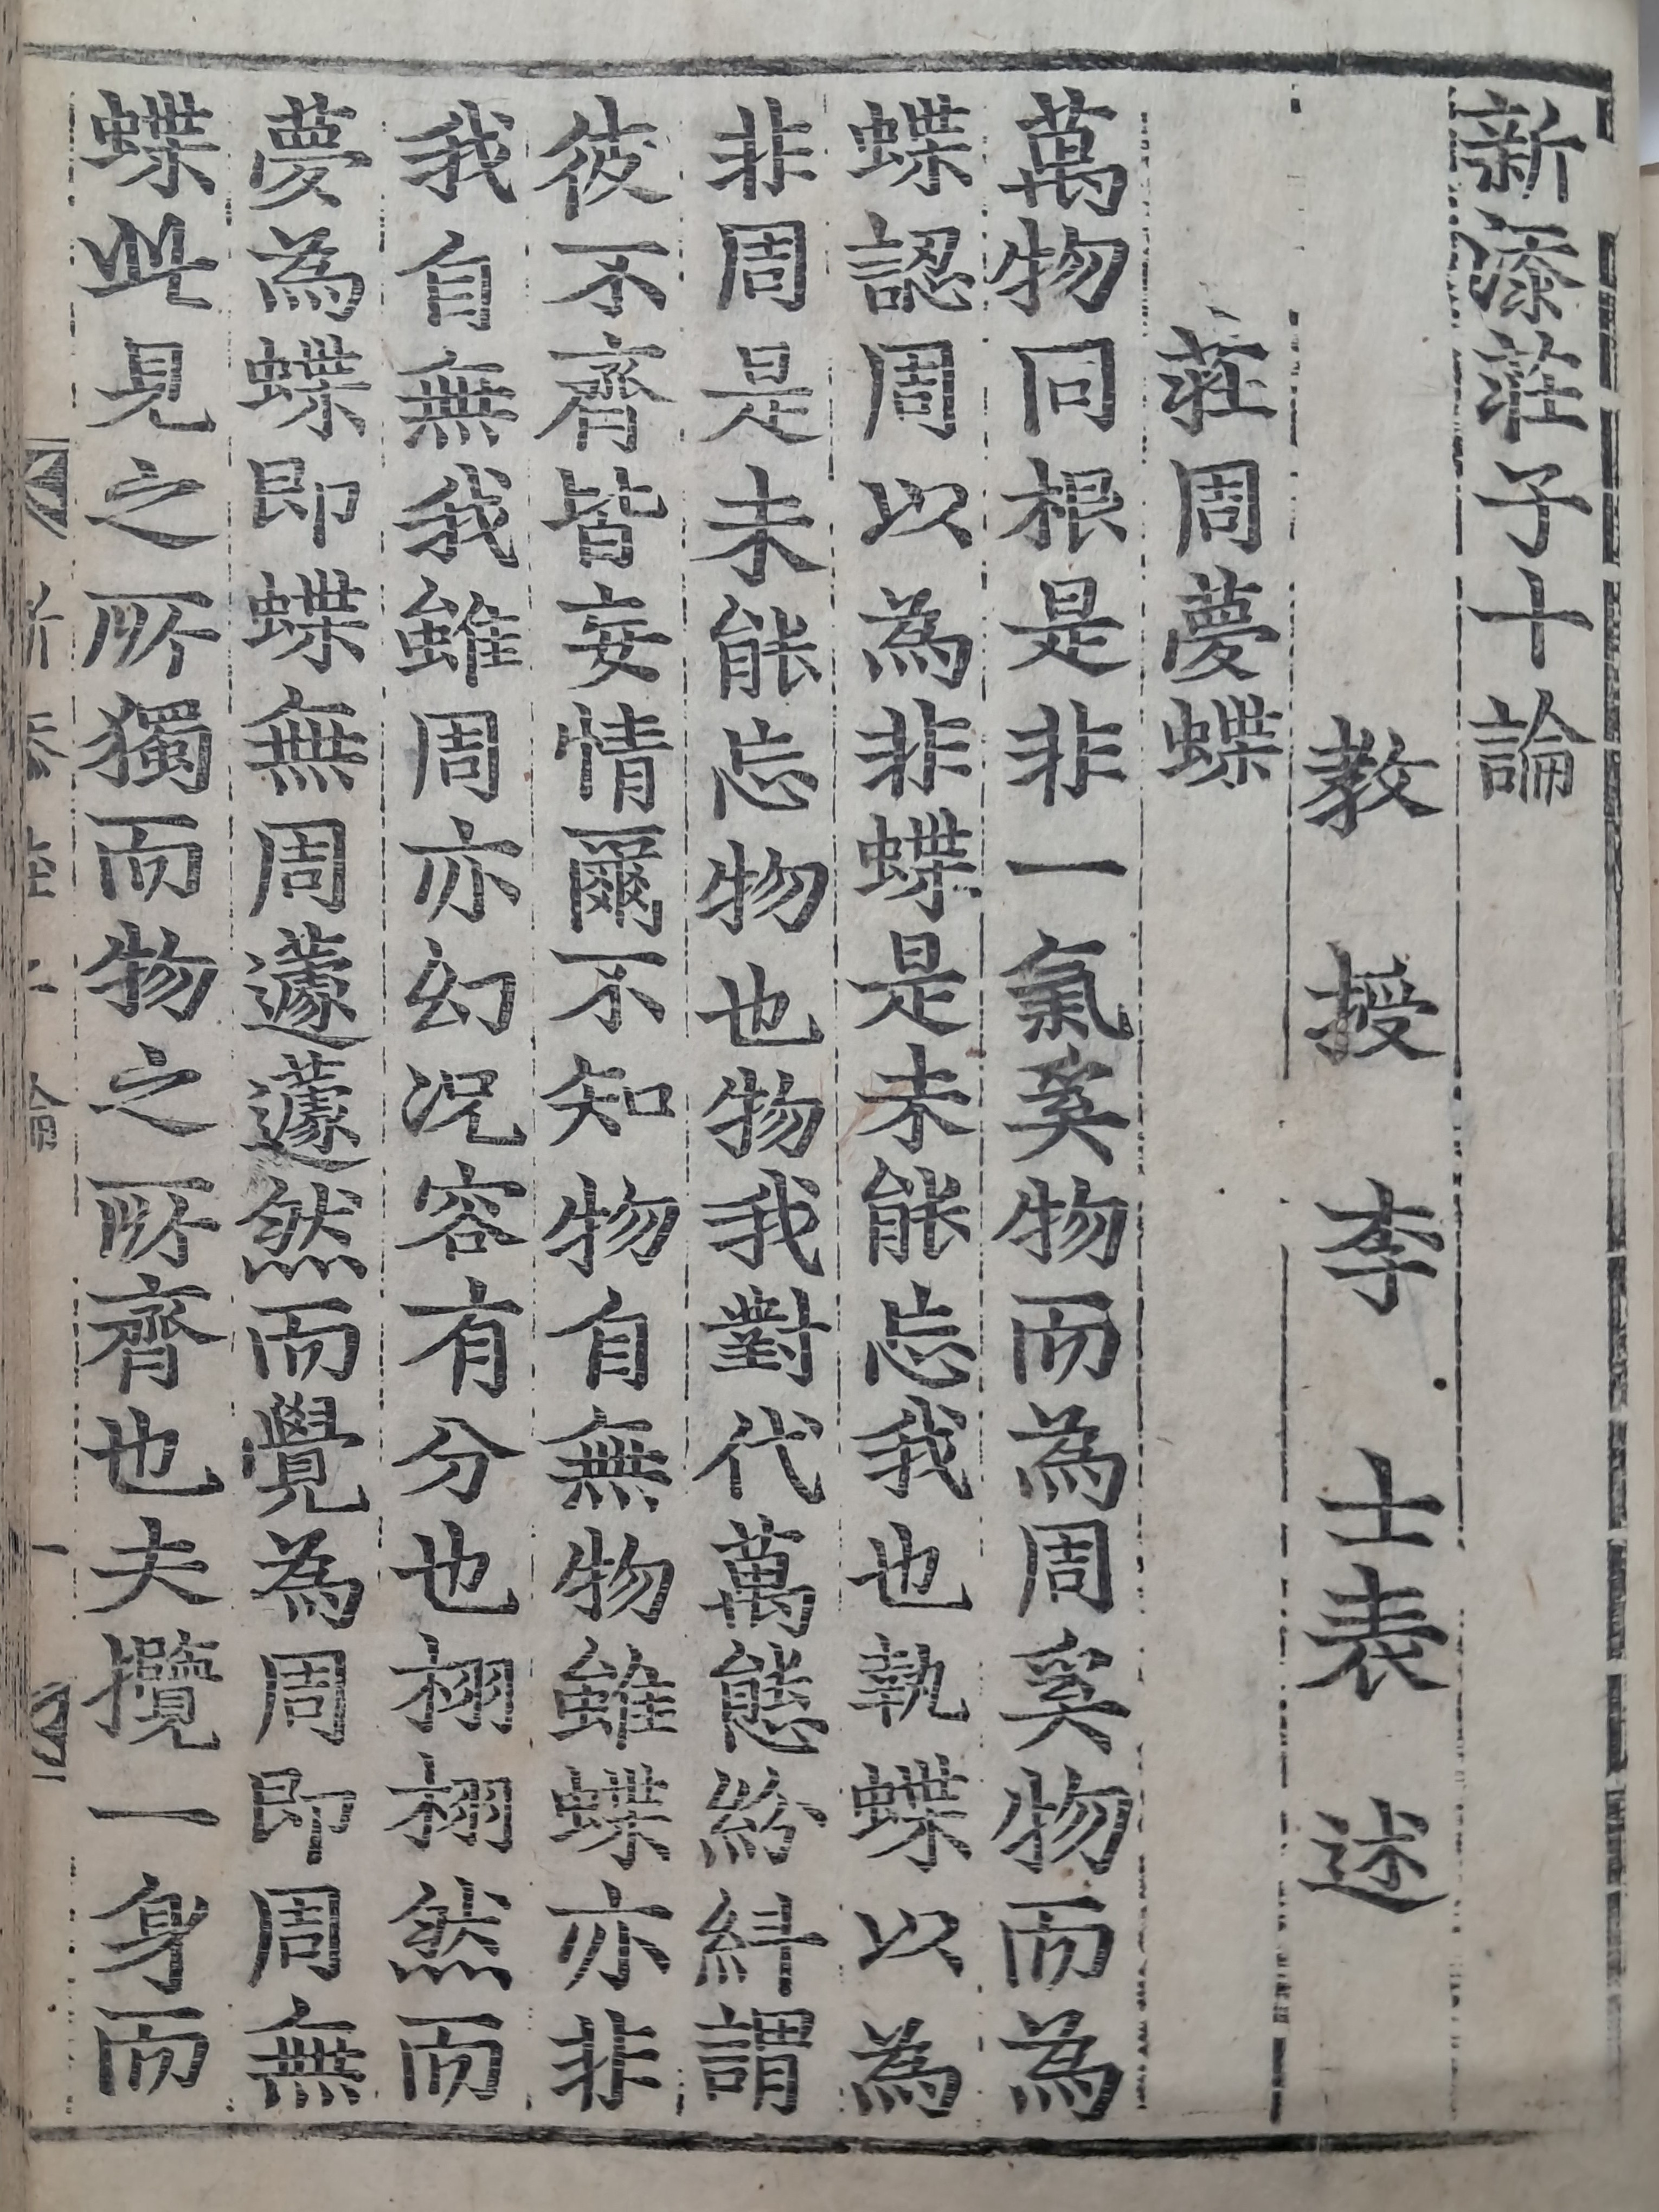 新添莊子十論
教授李士表述
莊周夢蝶
萬物同根是非一氣奚物而為周奚物而為
蝶認周以為非蝶是未能忘我也執蝶以為
非周是未能忘物也物我對代萬態紛紏謂
彼不齊皆妄情爾不知物自無物雖蝶亦非
我自無我雖周亦幻況容有分也栩栩然而
夢為蝶即蝶無周蘧蘧然而覺為周即周無
蝶此見之所獨而物之所齊也夫攬一身而